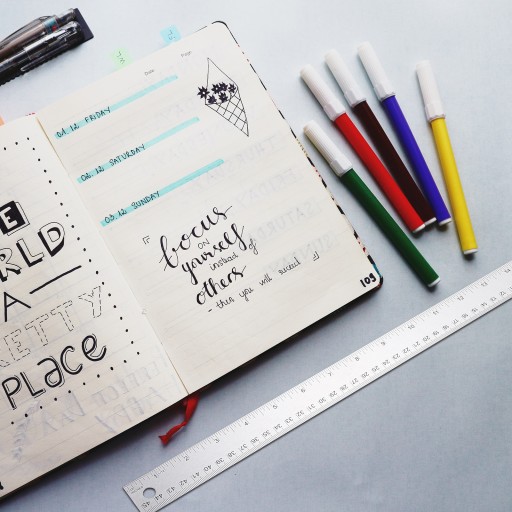 E
RLD
A
ETTY
PLACE
Date
Page
01.12 FRIDAY
02.12 SATURDAY
03.12 SUNDAY
focus
on
yourself
instead of
others
- then you will succeed
109